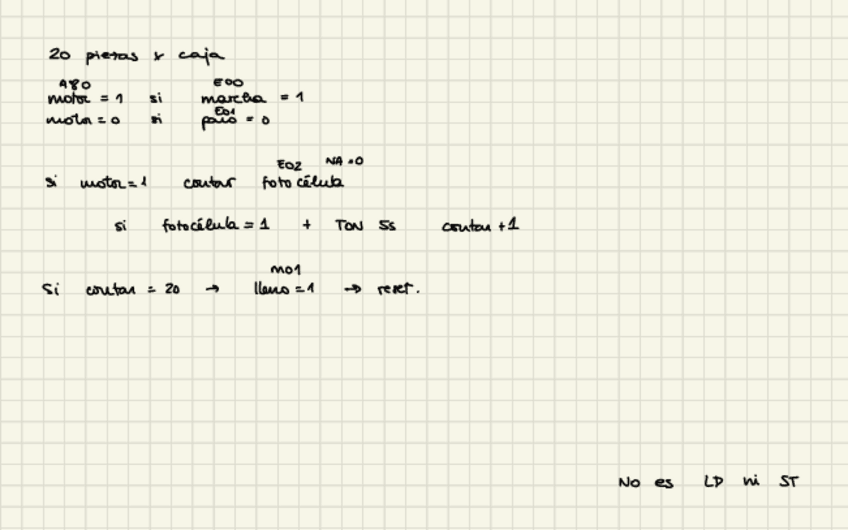 20 piezas x caja
A80 E00
motor = 1 si marcha = 1
E01
motor = 0 si paro = 0
E02 NA = 0
si motor = 1 contar fotocélula
si fotocélula = 1 + TON 5s contar +1
M01
Si contar = 20 → lleno = 1 → reset.
No es LD ni ST